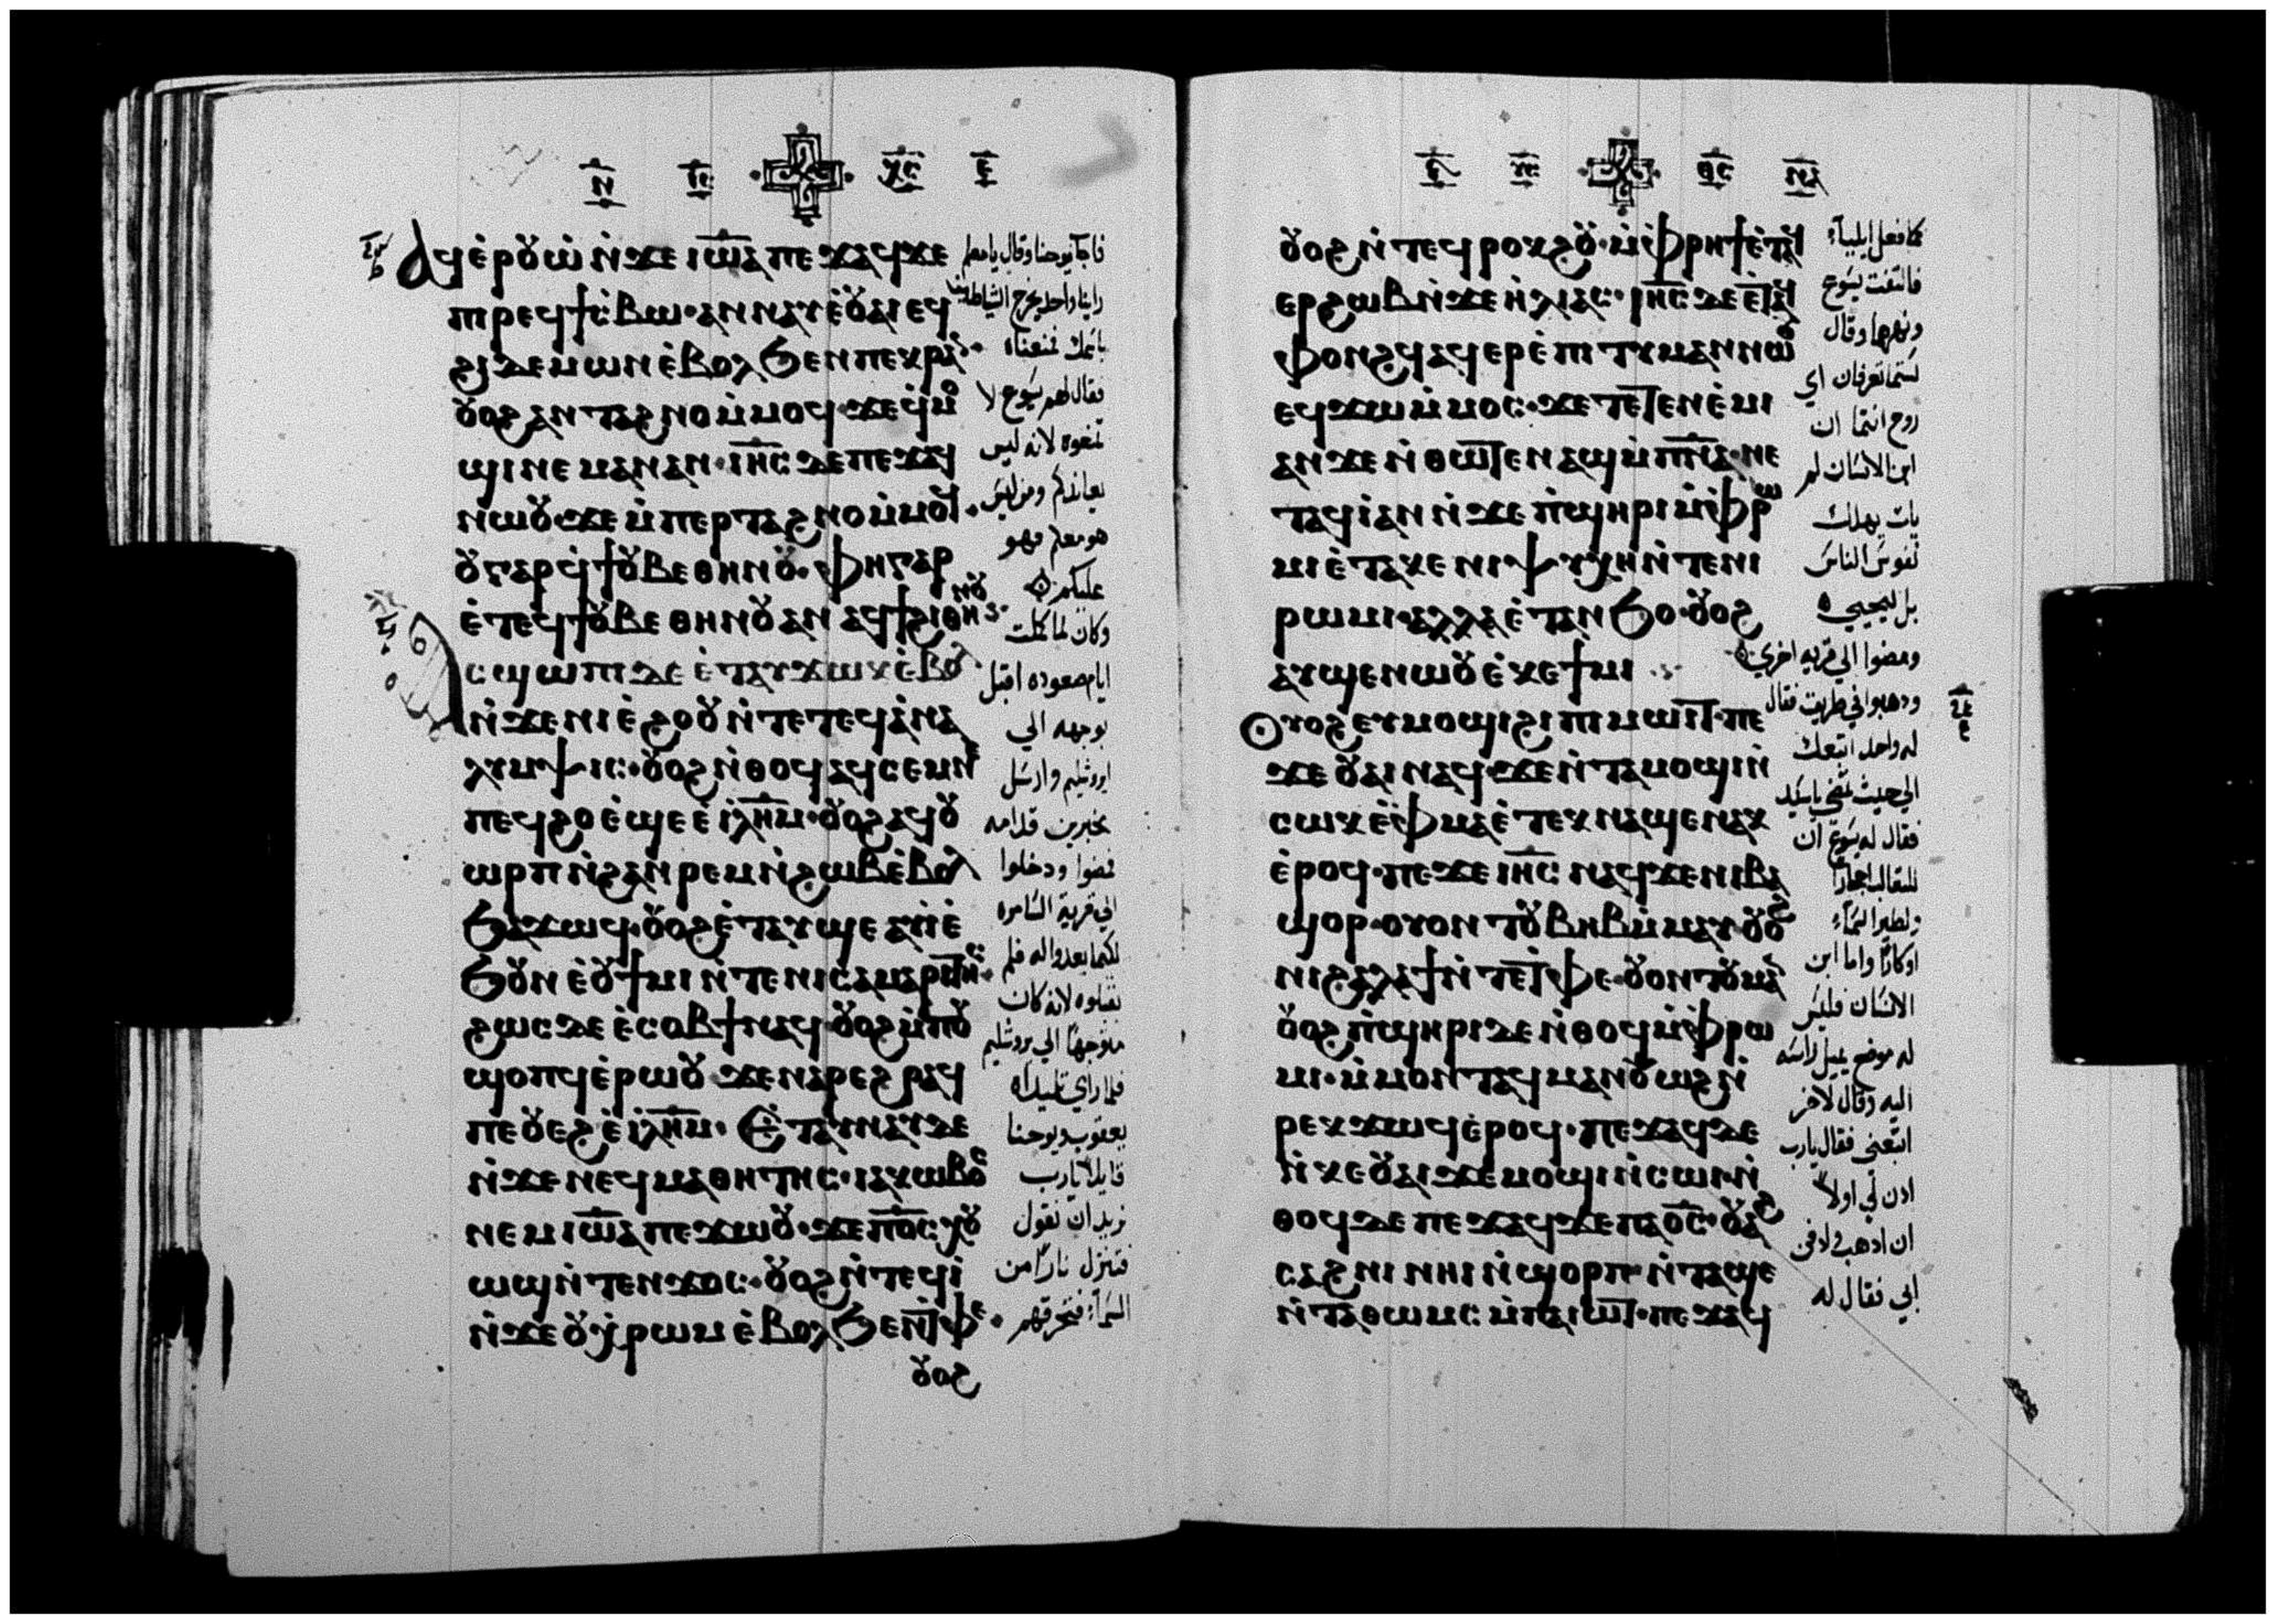 ⲛ ⲓⲥ ⲭⲥ ⲉ
ⲁϥⲉ̀ⲣⲟⲩⲱ̀ ⲛ̀ϫⲉ ⲓⲱ̅ⲁ ⲡⲉϫⲁϥ ϫⲉ
ⲡⲓⲣⲉϥϯⲥ̀ⲃⲱ· ⲁⲛⲛⲁⲩ ⲉ̀ⲟⲩⲁⲓ ⲉϥ
ϩⲓⲇⲉⲙⲱⲛ ⲉ̀ⲃⲟⲗ ϧⲉⲛ ⲡⲉⲕⲣⲁⲛ·
ⲟⲩⲟϩ ⲁⲛⲧⲁϩⲛⲟ ⲙ̀ⲙⲟϥ· ϫⲉ ϥ̀ⲙⲟ
ϣⲓ ⲛⲉⲙⲁⲛ ⲁⲛ· ⲓⲏ̅ⲥ ⲇⲉ ⲡⲉϫⲁϥ
ⲛⲱⲟⲩ ϫⲉ ⲙ̀ⲡⲉⲣⲧⲁϩⲛⲟ ⲙ̀ⲙⲟϥ·
ⲟⲩ ⲅⲁⲣ ϥ̀ϯ ⲟⲩⲃⲉ ⲑⲏⲛⲟⲩ· ⲫⲏ ⲅⲁⲣ
ⲉ̀ⲧⲉϥϯ ⲟⲩⲃⲉ ⲑⲏⲛⲟⲩ ⲁⲛ ⲁϥϯ ϩⲓ ⲑⲏⲛⲟⲩ·
ⲁⲥϣⲱⲡⲓ ⲇⲉ ⲉ̀ⲧⲁⲩϫⲱⲕ ⲉ̀ⲃⲟⲗ
ⲛ̀ϫⲉ ⲛⲓⲉ̀ϩⲟⲟⲩ ⲛ̀ⲧⲉ ⲧⲉϥⲁ̀ⲛⲁ
ⲗⲩⲙⲯⲓⲥ· ⲟⲩⲟϩ ⲛ̀ⲑⲟϥ ⲁϥⲥⲉⲙⲛⲉ
ⲡⲉϥϩⲟ ⲉ̀ϣⲉ ⲉ̀ⲓ̀ⲗⲏ̅ⲙ· ⲟⲩⲟϩ ⲁϥⲟⲩ
ⲱⲣⲡ ⲛ̀ϩⲁⲛⲣⲉⲙⲛ̀ϩⲱⲃ ⲉ̀ⲃⲟⲗ
ϧⲁϫⲱϥ· ⲟⲩⲟϩ ⲉ̀ⲧⲁⲩϣⲉ ⲁⲩⲓ̀ ⲉ̀
ϧⲟⲩⲛ ⲉ̀ⲟⲩϯⲙⲓ ⲛ̀ⲧⲉ ⲛⲓⲥⲁⲙⲁⲣⲓⲧⲏⲥ·
ϩⲱⲥ ⲇⲉ ⲉ̀ⲥⲟⲃϯ ⲛⲁϥ· ⲟⲩⲟϩ ⲙ̀ⲡⲟⲩ
ϣⲟⲡϥ ⲉ̀ⲣⲱⲟⲩ ϫⲉ ⲛⲁⲣⲉ ϩⲣⲁϥ
ⲡⲉ ⲟⲩⲉϩ ⲉ̀ⲓ̀ⲗⲏ̅ⲙ· ⲉ̀ⲧⲁⲩⲛⲁⲩ ⲇⲉ
ⲛ̀ϫⲉ ⲛⲉϥⲙⲁⲑⲏⲧⲏⲥ· ⲓⲁⲕⲱⲃⲟⲥ
ⲛⲉⲙ ⲓⲱ̅ⲁ ⲡⲉϫⲱⲟⲩ· ϫⲉ ⲡⲟ̅ⲥ ⲭⲟⲩ
ⲱϣ ⲛ̀ⲧⲉⲛϫⲟⲥ· ⲟⲩⲟϩ ⲛ̀ⲧⲉϥⲓ̀
ⲛ̀ϫⲉ ⲟⲩⲭ̀ⲣⲱⲙ ⲉ̀ⲃⲟⲗ ϧⲉⲛ ⲧⲫⲉ·
ⲟⲩⲟϩ
فاجاب يوحنا وقال يا معلم
راينا واحد يخرج الشياطين
باسمك فمنعناه
فقال لهم يسوع لا
تمنعوه لانه ليس
يعاندكم ومن ليس
هو معكم فهو
عليكم
وكان لما كملت
ايام صعوده اقبل
بوجهه الي
ايروشليم وارسل
مخبرين قدامه
فمضوا ودخلوا
الي قرية السامره
لكيما يعدوا له فلم
يقبلوه لانه كان
متوجها الي يروشليم
فلما راي تلميذاه
يعقوب ويوحنا
قايلا يارب
نريد ان تقول
فتنزل نارا من
السماء فتحرقهم
ⲟⲩⲟϩ ⲛ̀ⲧⲉϥⲣⲟⲕϩⲟⲩ· ⲙ̀ⲫⲣⲏϯ ⲉ̀ⲧⲁϥ
ⲉⲣϩⲱⲃ ⲛ̀ϫⲉ ⲏ̀ⲗⲓⲁⲥ· ⲓⲏ̅ⲥ ⲇⲉ ⲉ̀ⲧⲁϥ
ⲫⲟⲛϩϥ ⲁϥⲉⲣⲉ̀ⲡⲓⲧⲩⲙⲁⲛ ⲛⲱⲟⲩ
ⲉϥϫⲱ ⲙ̀ⲙⲟⲥ· ϫⲉ ⲧⲉⲧⲉⲛⲉ̀ⲙⲓ
ⲁⲛ ϫⲉ ⲛ̀ⲑⲱⲧⲉⲛ ⲁϣ ⲙ̀ⲡⲛ̅ⲁ· ⲛⲉ
ⲧⲁϥⲓ̀ ⲁⲛ ⲛ̀ϫⲉ ⲡ̀ϣⲏⲣⲓ ⲙ̀ⲫⲣⲱ
ⲙⲓ ⲉ̀ⲧⲁⲕⲉ ⲛⲓⲯⲩⲭⲏ ⲛ̀ⲧⲉ ⲛⲓ
ⲣⲱⲙⲓ· ⲁⲗⲗⲁ ⲉ̀ⲧⲁⲛϧⲟ· ⲟⲩⲟϩ
ⲁⲩϣⲉⲛⲱⲟⲩ ⲉ̀ⲕⲉϯⲙⲓ
ⲟⲩⲟϩ ⲉⲩⲙⲟϣⲓ ϩⲓ ⲡⲓⲙⲱⲓⲧ· ⲡⲉ
ϫⲉ ⲟⲩⲁⲓ ⲛⲁϥ· ϫⲉ ⲛ̀ⲧⲁⲙⲟϣⲓ ⲛ̀
ⲥⲱⲕ ⲉ̀ⲫⲙⲁ ⲉ̀ⲧⲉⲕⲛⲁϣⲉⲛⲁⲕ
ⲉ̀ⲣⲟϥ· ⲡⲉϫⲉ ⲓⲏ̅ⲥ ⲛⲁϥ ϫⲉ ⲛⲓⲃⲁ
ϣⲟⲣ· ⲟⲩⲟⲛⲧⲟⲩ ⲃⲏⲃ ⲙ̀ⲙⲁⲩ· ⲟⲩⲟϩ
ⲛⲓϩⲁⲗⲁϯ ⲛ̀ⲧⲉ ⲧⲫⲉ· ⲟⲩⲟⲛⲧⲟⲩ ⲙⲁ
ⲟⲩⲟϩ ⲡ̀ϣⲏⲣⲓ ⲇⲉ ⲛ̀ⲑⲟϥ ⲙ̀ⲫⲣⲱ
ⲙⲓ· ⲙ̀ⲙⲟⲛⲧⲁϥ ⲙⲁ ⲛ̀ⲟⲩⲱϩ ⲛ̀
ⲣⲉⲕ ϫⲱϥ ⲉ̀ⲣⲟϥ· ⲡⲉϫⲁϥ ⲇⲉ
ⲛ̀ⲕⲉⲟⲩⲁⲓ ϫⲉ ⲙⲟϣⲓ ⲛ̀ⲥⲱⲓ· ⲛ̀
ⲑⲟϥ ⲇⲉ ⲡⲉϫⲁϥ ϫⲉ ⲡⲁⲟ̅ⲥ· ⲟⲩⲁϩ
ⲥⲁϩⲛⲓ ⲛⲏⲓ ⲛ̀ϣⲟⲣⲡ ⲛ̀ⲧⲁϣⲉ
ⲛ̀ⲧⲁⲑⲱⲙⲥ ⲙ̀ⲡⲁⲓⲱⲧ· ⲡⲉϫⲁϥ
كما فعل ايلياء
فالتفت يسوع
ونهرهما وقال
لستما تعرفان اي
روح انتما ان
ابن الانسان لم
يات يهلك
نفوس الناس
بل ليحيي
ومضوا الي قرية اخري
وذهبوا في طريق فقال
له واحد اتبعك
الي حيث تمضي ياسيد
فقال له يسوع ان
للثعالب اجحارا
ولطير السماء
اوكارا واما ابن
الانسان فليس
له موضع يميل راسه
اليه وقال لاخر
اتبعني فقال يارب
ادن لي اولا
ان اذهب وادفن
ابي فقال له